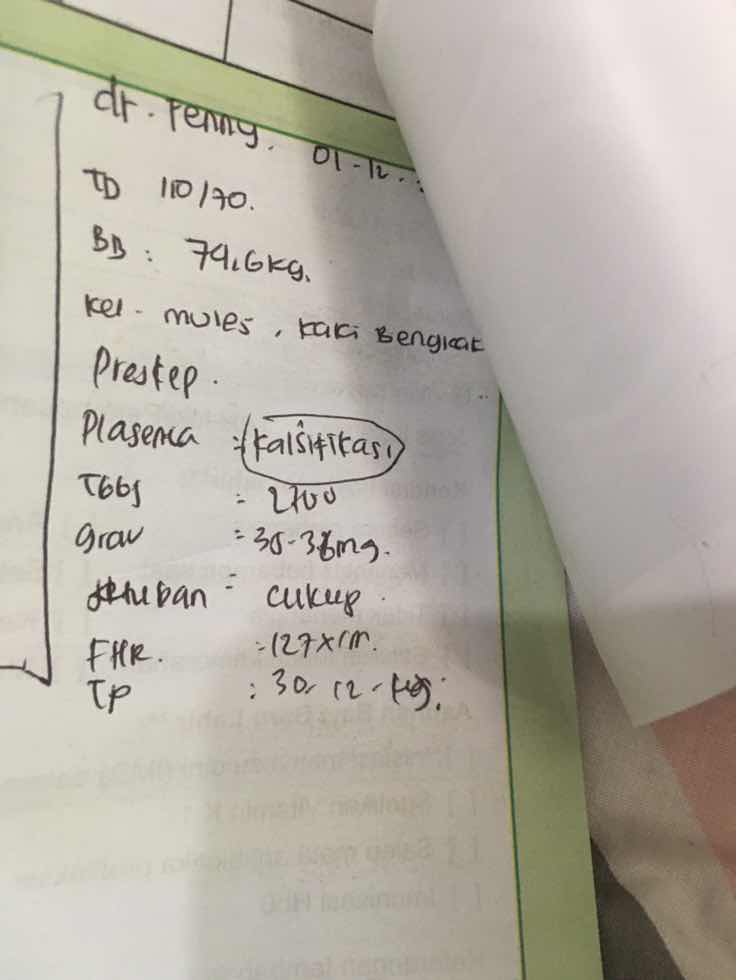 dr. Fenny.
01-12.
TD 110/70.
BB : 74,6kg.
kel - mules, kaki Bengkak
Preskep.
Plasenta : kalsifikasi
TBBJ = 2700
grav = 35-36mg.
ketuban = cukup.
FHR. : 127x/m.
TP : 30-12-